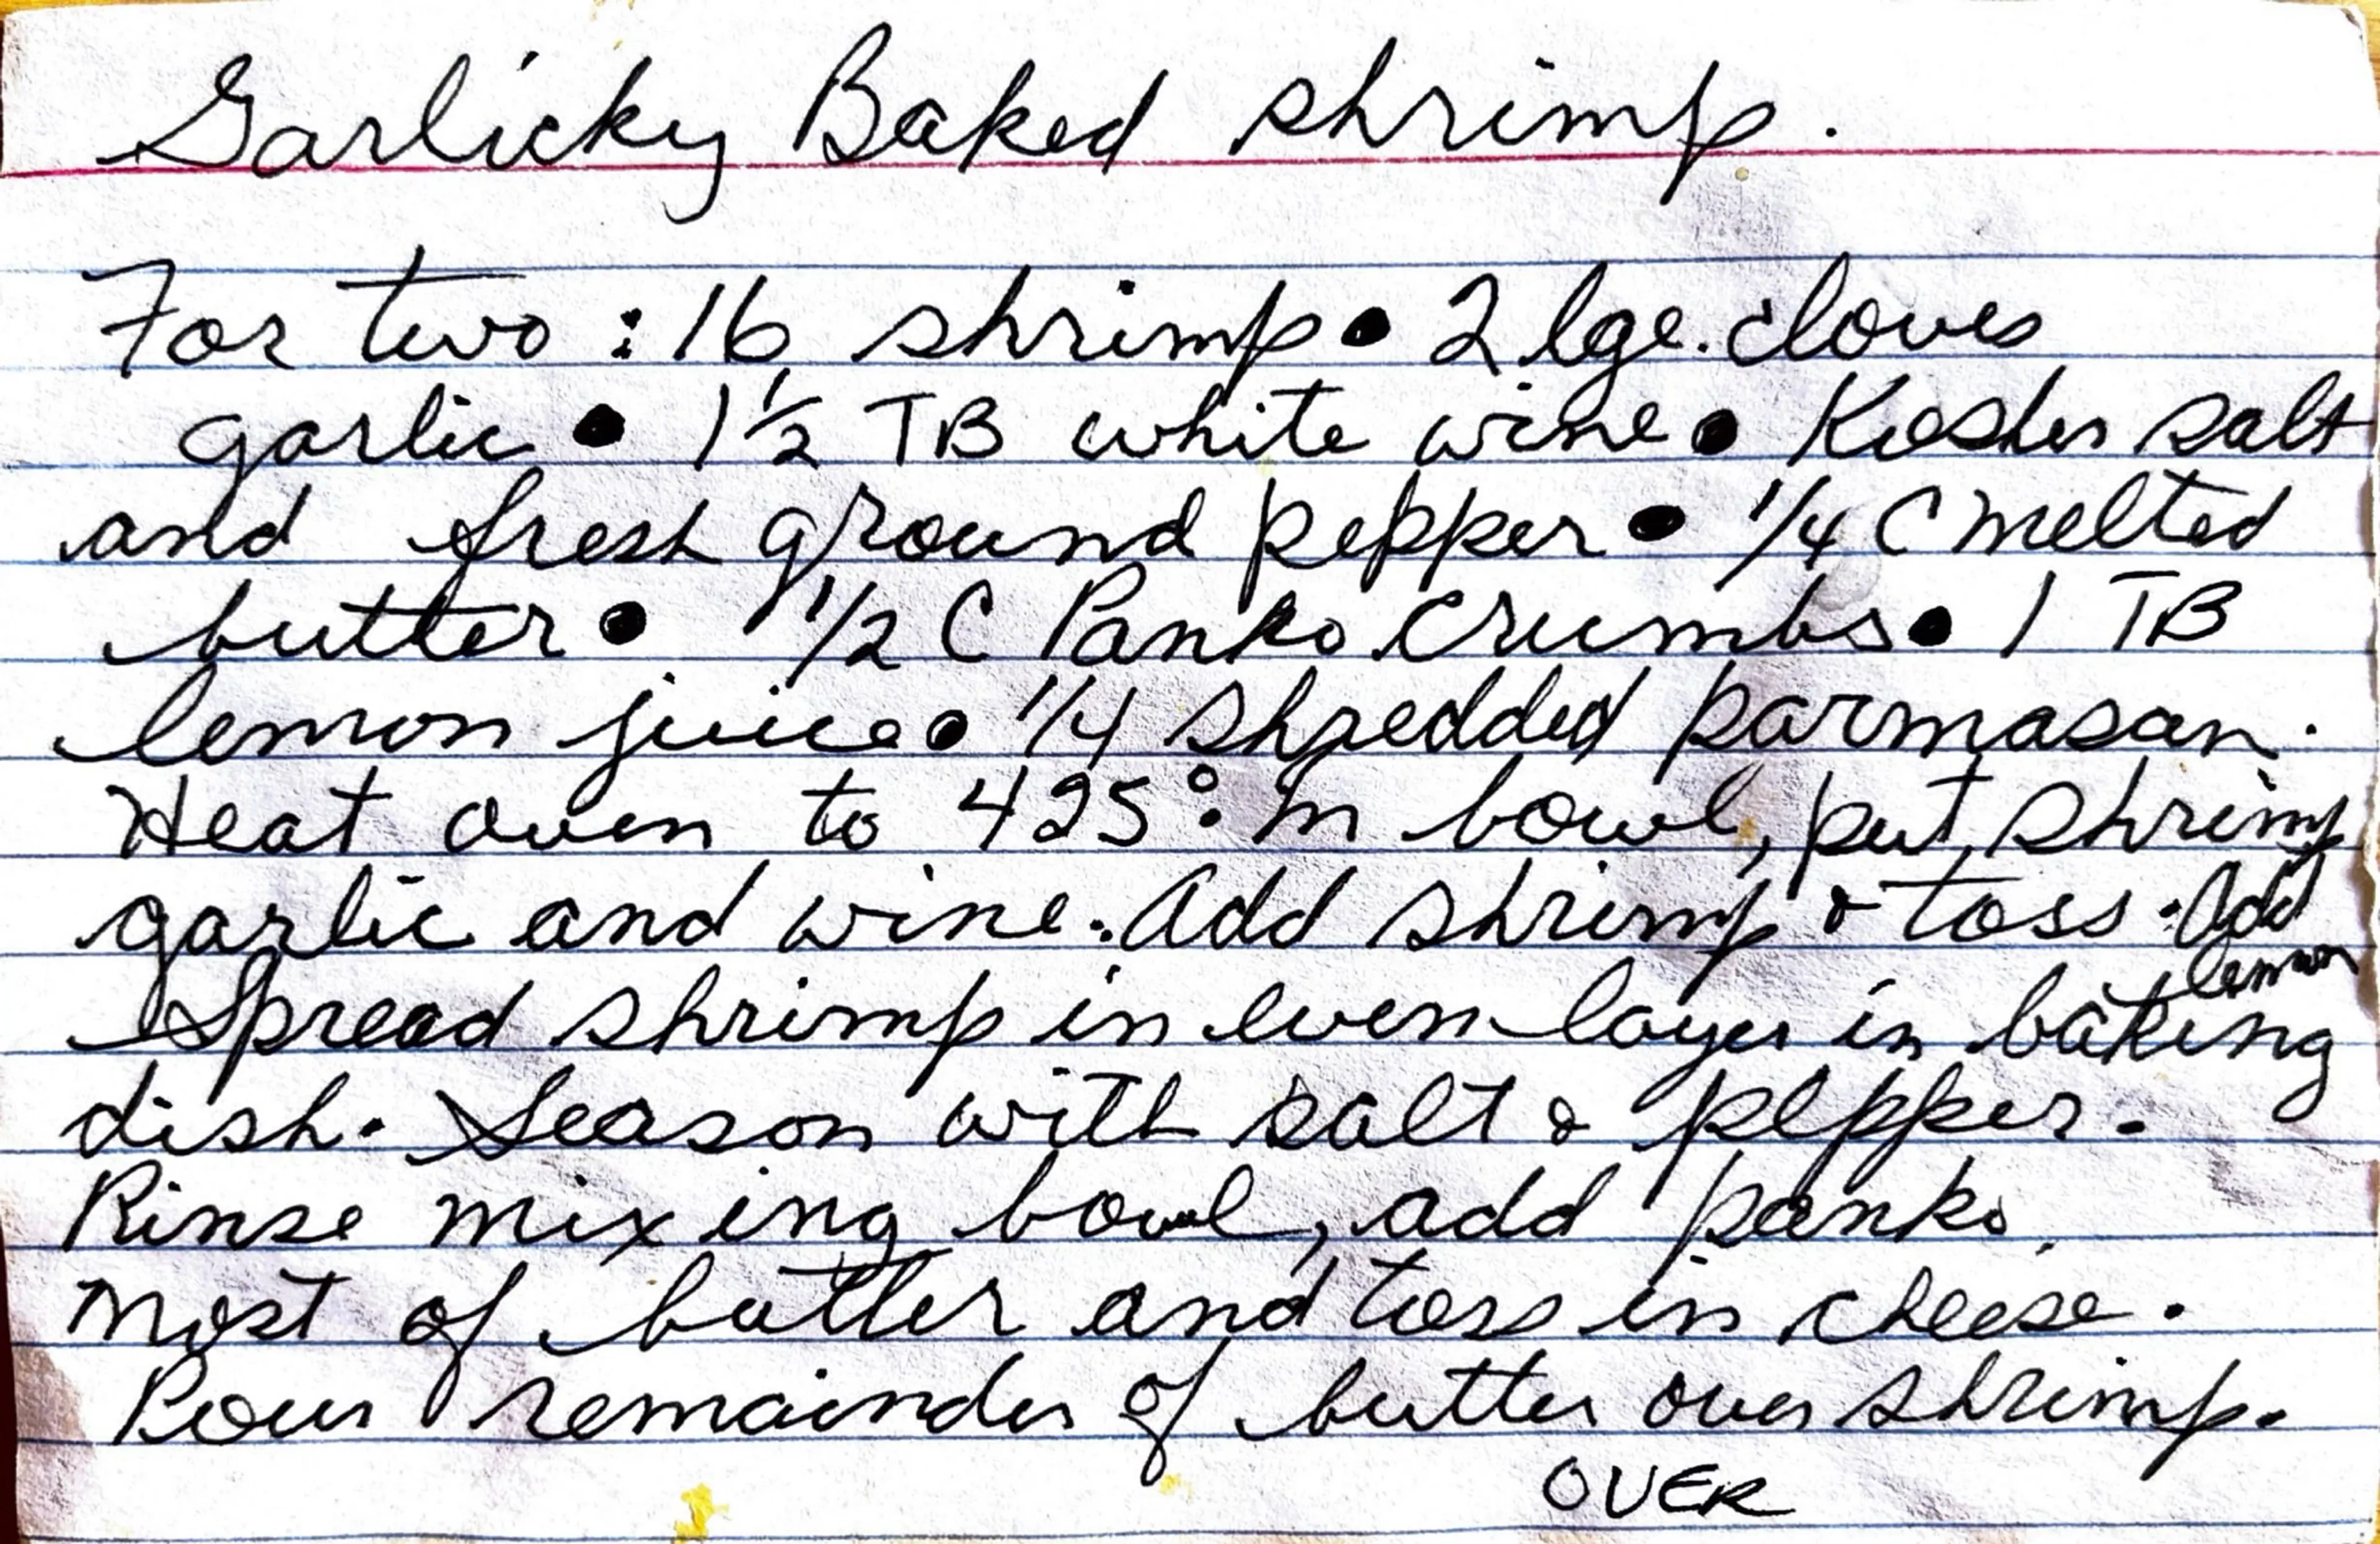 Garlicky Baked shrimp.
For two: 16 shrimp • 2 lge. cloves
garlic • 1 1/2 TB white wine • Kosher salt
and fresh ground pepper • 1/4 C melted
butter • 1/2 C Panko Crumbs • 1 TB
lemon juice • 1/4 shredded parmasan.
Heat oven to 425°. In bowl, put shrimp
garlic and wine. Add shrimp & toss. Add
lemon
Spread shrimp in even layer in baking
dish. Season with salt & pepper.
Rinse mixing bowl, add panko,
most of butter and toss in cheese.
Pour remainder of butter over shrimp.
OVER